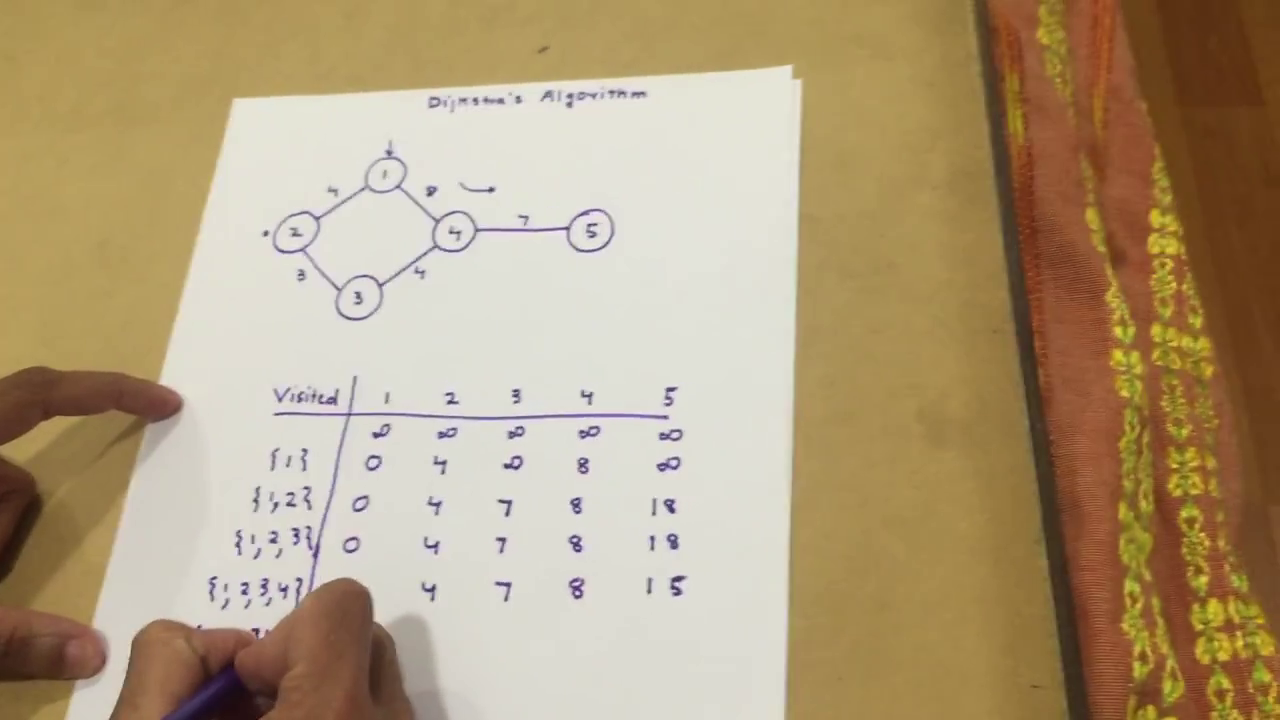 Dijkstra's Algorithm
1
4 8
2 4 7 5
3 4
3
Visited 1 2 3 4 5
∞ ∞ ∞ ∞ ∞
{1} 0 4 ∞ 8 ∞
{1,2} 0 4 7 8 18
{1,2,3} 0 4 7 8 18
{1,2,3,4} 4 7 8 15